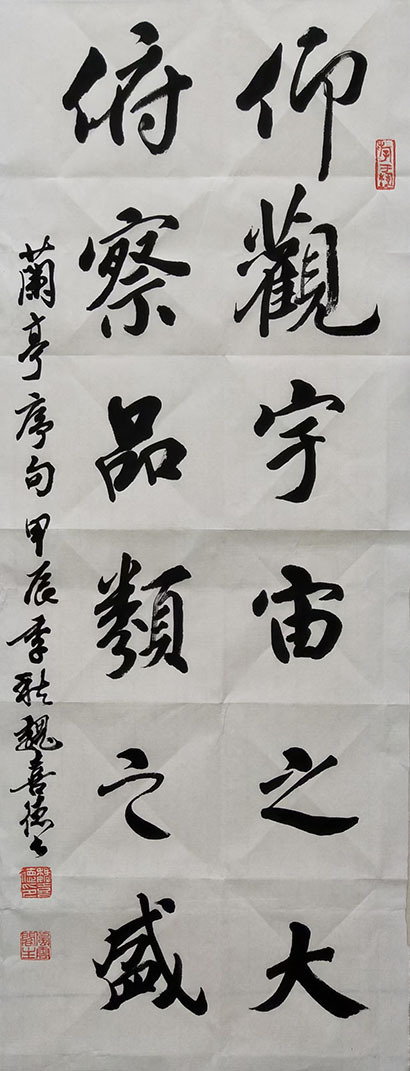 仰觀宇宙之大
俯察品類之盛
蘭亭序句甲辰季秋魏喜德書